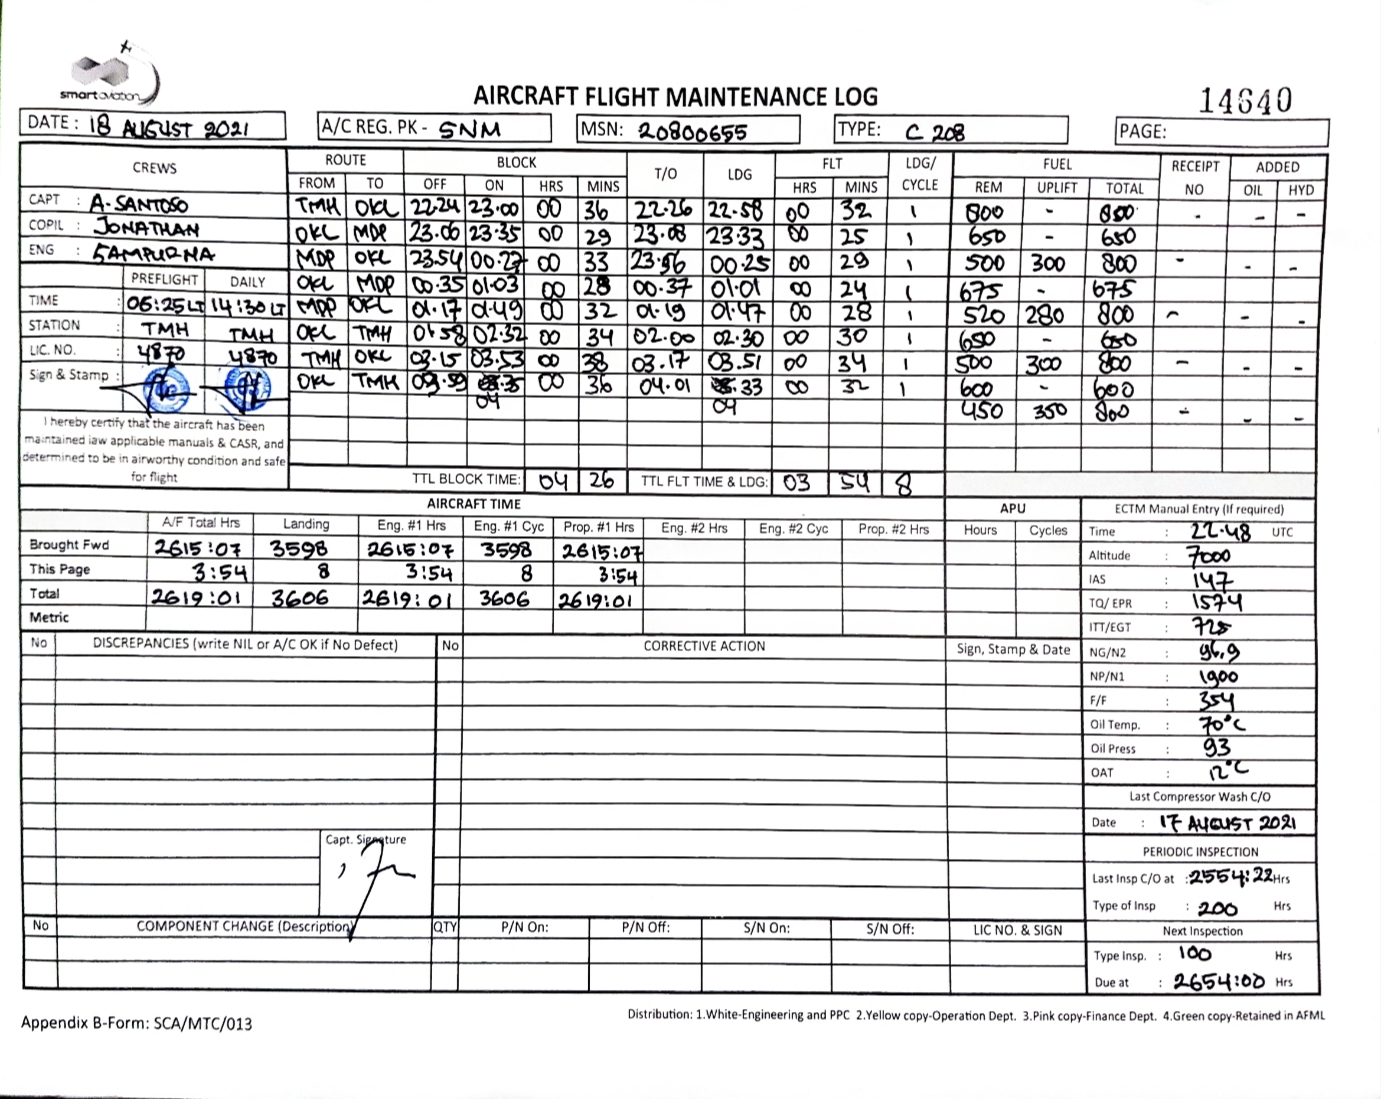 smart aviation
AIRCRAFT FLIGHT MAINTENANCE LOG
14640
DATE : 18 AUGUST 2021 A/C REG. PK - SNM MSN: 20800655 TYPE: C 208 PAGE:
CREWS ROUTE BLOCK T/O LDG FLT LDG/CYCLE FUEL RECEIPT NO ADDED
FROM TO OFF ON HRS MINS HRS MINS REM UPLIFT TOTAL OIL HYD
CAPT : A. SANTOSO TMH OKL 22.24 23.00 00 36 22.26 22.58 00 32 1 800 - 800 - - -
COPIL : JONATHAN OKL MDP 23.06 23.35 00 29 23.08 23.33 00 25 1 650 - 650
ENG : SAMPURNA MDP OKL 23.54 00.27 00 33 23.56 00.25 00 29 1 500 300 800 - - -
PREFLIGHT DAILY OKL MDP 00.35 01.03 00 28 00.37 01.01 00 24 1 675 - 675
TIME : 06:25 LT 14:30 LT MDP OKL 01.17 01.49 00 32 01.19 01.47 00 28 1 520 280 800 - - -
STATION : TMH TMH OKL TMH 01.58 02.32 00 34 02.00 02.30 00 30 1 650 - 650
LIC. NO. : 4870 4870 TMH OKL 03.15 03.53 00 38 03.17 03.51 00 34 1 500 300 800 - - -
Sign & Stamp : OKL TMH 03.59 .35 00 36 04.01 .33 00 32 1 600 - 600
04 04 450 350 800 - - -
I hereby certify that the aircraft has been
maintained iaw applicable manuals & CASR, and
determined to be in airworthy condition and safe
for flight
TTL BLOCK TIME: 04 26 TTL FLT TIME & LDG: 03 54 8
AIRCRAFT TIME APU ECTM Manual Entry (If required)
A/F Total Hrs Landing Eng. #1 Hrs Eng. #1 Cyc Prop. #1 Hrs Eng. #2 Hrs Eng. #2 Cyc Prop. #2 Hrs Hours Cycles Time : 22.48 UTC
Brought Fwd 2615:07 3598 2615:07 3598 2615:07 Altitude : 7000
This Page 3:54 8 3:54 8 3:54 IAS : 147
Total 2619:01 3606 2619:01 3606 2619:01 TQ/ EPR : 1574
Metric ITT/EGT : 725
No DISCREPANCIES (write NIL or A/C OK if No Defect) No CORRECTIVE ACTION Sign, Stamp & Date NG/N2 : 96,9
NP/N1 : 1900
F/F : 354
Oil Temp. : 70°C
Oil Press : 93
OAT : 12°C
Last Compressor Wash C/O
Date : 17 AUGUST 2021
Capt. Signature
PERIODIC INSPECTION
Last Insp C/O at : 2554:22 Hrs
Type of Insp : 200 Hrs
No COMPONENT CHANGE (Description) QTY P/N On: P/N Off: S/N On: S/N Off: LIC NO. & SIGN Next Inspection
Type Insp. : 100 Hrs
Due at : 2654:00 Hrs
Appendix B-Form: SCA/MTC/013
Distribution: 1.White-Engineering and PPC 2.Yellow copy-Operation Dept. 3.Pink copy-Finance Dept. 4.Green copy-Retained in AFML